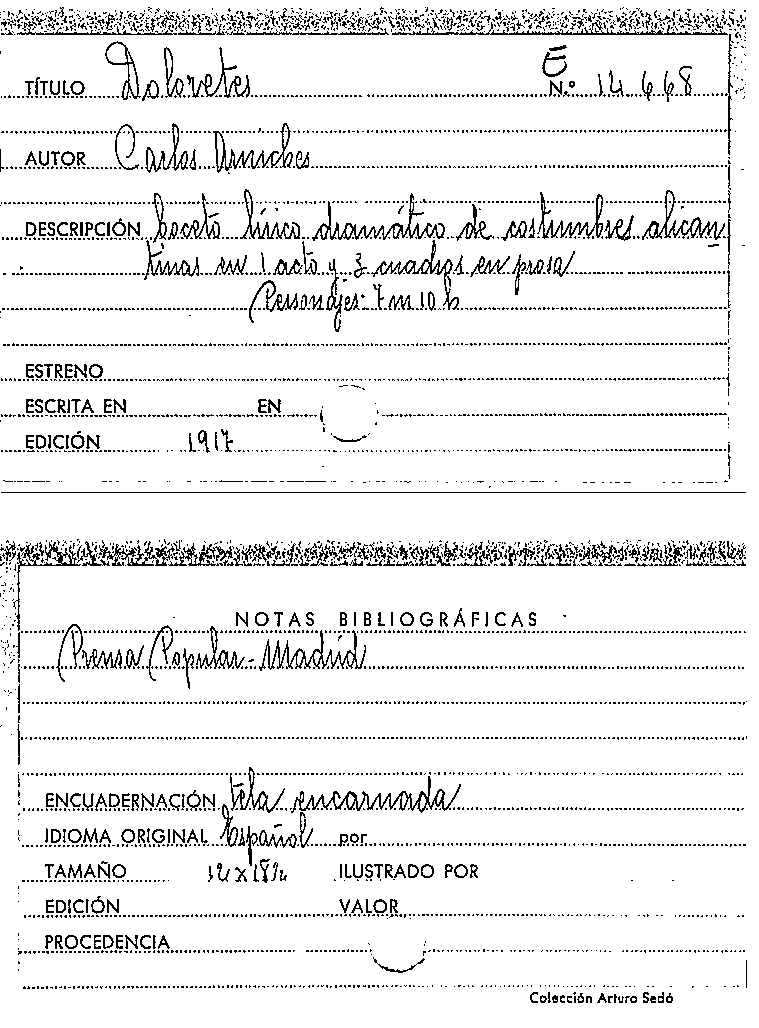 TÍTULO Doloretes E
N.º 14668
AUTOR Carlos Arniches
DESCRIPCIÓN boceto lírico dramático de costumbres alican
tinas en 1 acto y 3 cuadros en prosa
Personajes: 7 m 10 h
ESTRENO
ESCRITA EN EN
EDICIÓN 1917
NOTAS BIBLIOGRÁFICAS
Prensa Popular - Madrid
ENCUADERNACIÓN tela encarnada
IDIOMA ORIGINAL Español por
TAMAÑO ILUSTRADO POR
EDICIÓN VALOR
PROCEDENCIA
Colección Arturo Sedó